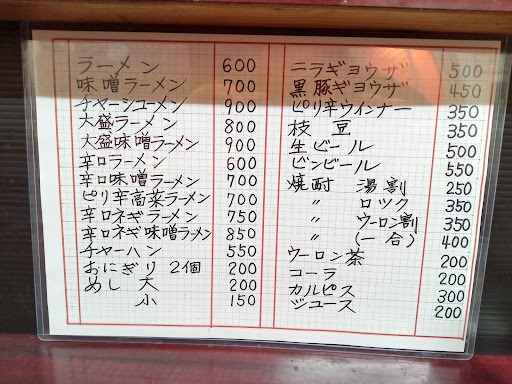 ラーメン 600
味噌ラーメン 700
チャーシューメン 900
大盛ラーメン 800
大盛味噌ラーメン 900
辛口ラーメン 600
辛口味噌ラーメン 700
ピリ辛高菜ラーメン 700
辛口ネギラーメン 750
辛口ネギ味噌ラーメン 850
チャーハン 550
おにぎり 2個 200
めし 大 200
小 150
ニラギョウザ 500
黒豚ギョウザ 450
ピリ辛ウインナー 350
枝豆 350
生ビール 500
ビンビール 550
焼酎 湯割 250
〃 ロック 350
〃 ウーロン割 350
〃 (一合) 400
ウーロン茶 200
コーラ 200
カルピス 300
ジュース 200